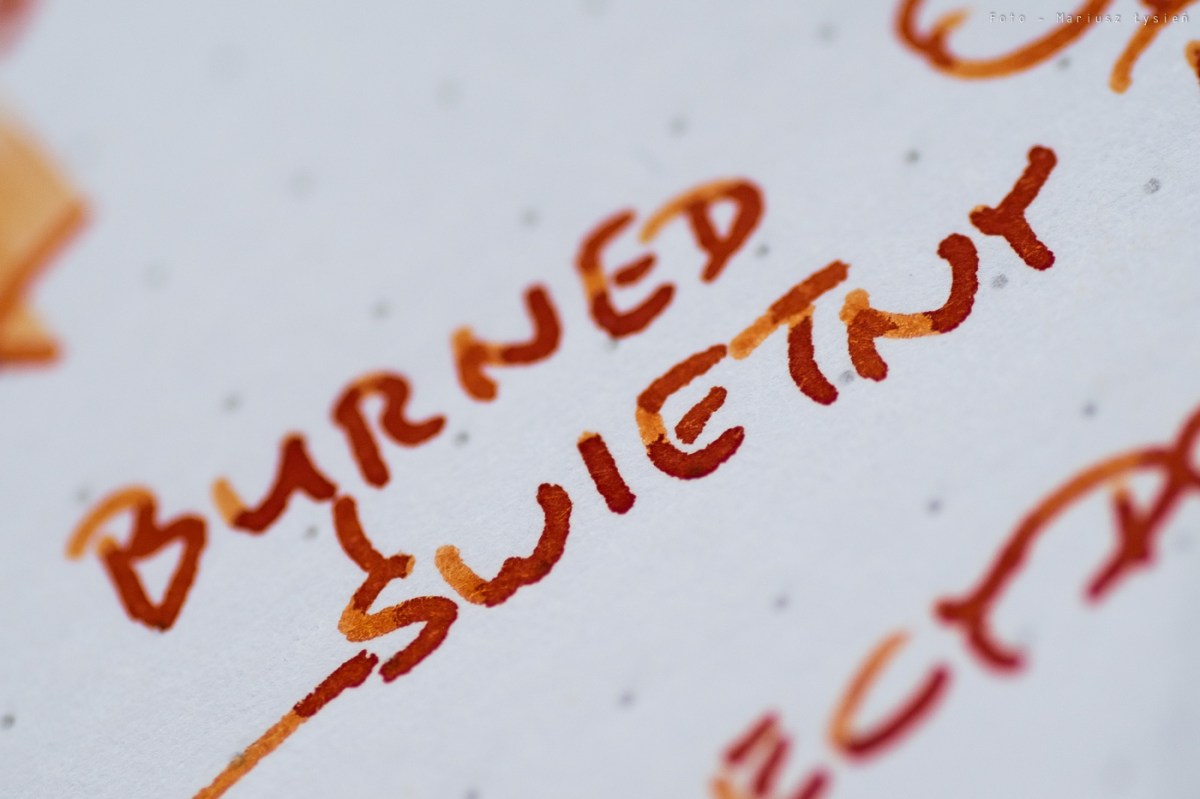 Foto - Mariusz Łysień
BURNED
- SWIETNY